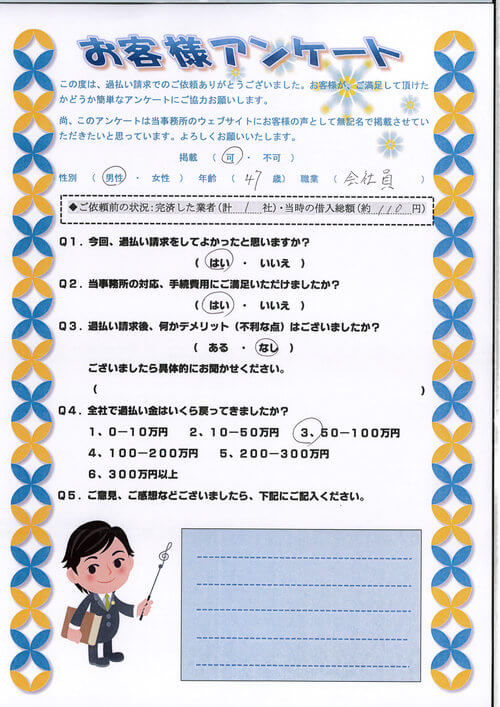 お客様アンケート
この度は、過払い請求でのご依頼ありがとうございました。お客様が、ご満足して頂けた
かどうか簡単なアンケートにご協力お願いします。
尚、このアンケートは当事務所のウェブサイトにお客様の声として無記名で掲載させてい
ただきたいと思っています。よろしくお願いいたします。
掲載 （ 可 ・ 不可 ）
性別 （ 男性 ・ 女性 ） 年齢 （ 47 歳） 職業 （ 会社員 ）
◆ご依頼前の状況：完済した業者（計 1 社）・当時の借入総額（約 110 円）
Q1．今回、過払い請求をしてよかったと思いますか？
（ はい ・ いいえ ）
Q2．当事務所の対応、手続費用にご満足いただけましたか？
（ はい ・ いいえ ）
Q3．過払い請求後、何かデメリット（不利な点）はございましたか？
（ ある ・ なし ）
ございましたら具体的にお聞かせください。
（ ）
Q4．全社で過払い金はいくら戻ってきましたか？
1、0－10万円 2、10－50万円 3、50－100万円
4、100－200万円 5、200－300万円
6、300万円以上
Q5．ご意見、ご感想などございましたら、下記にご記入ください。